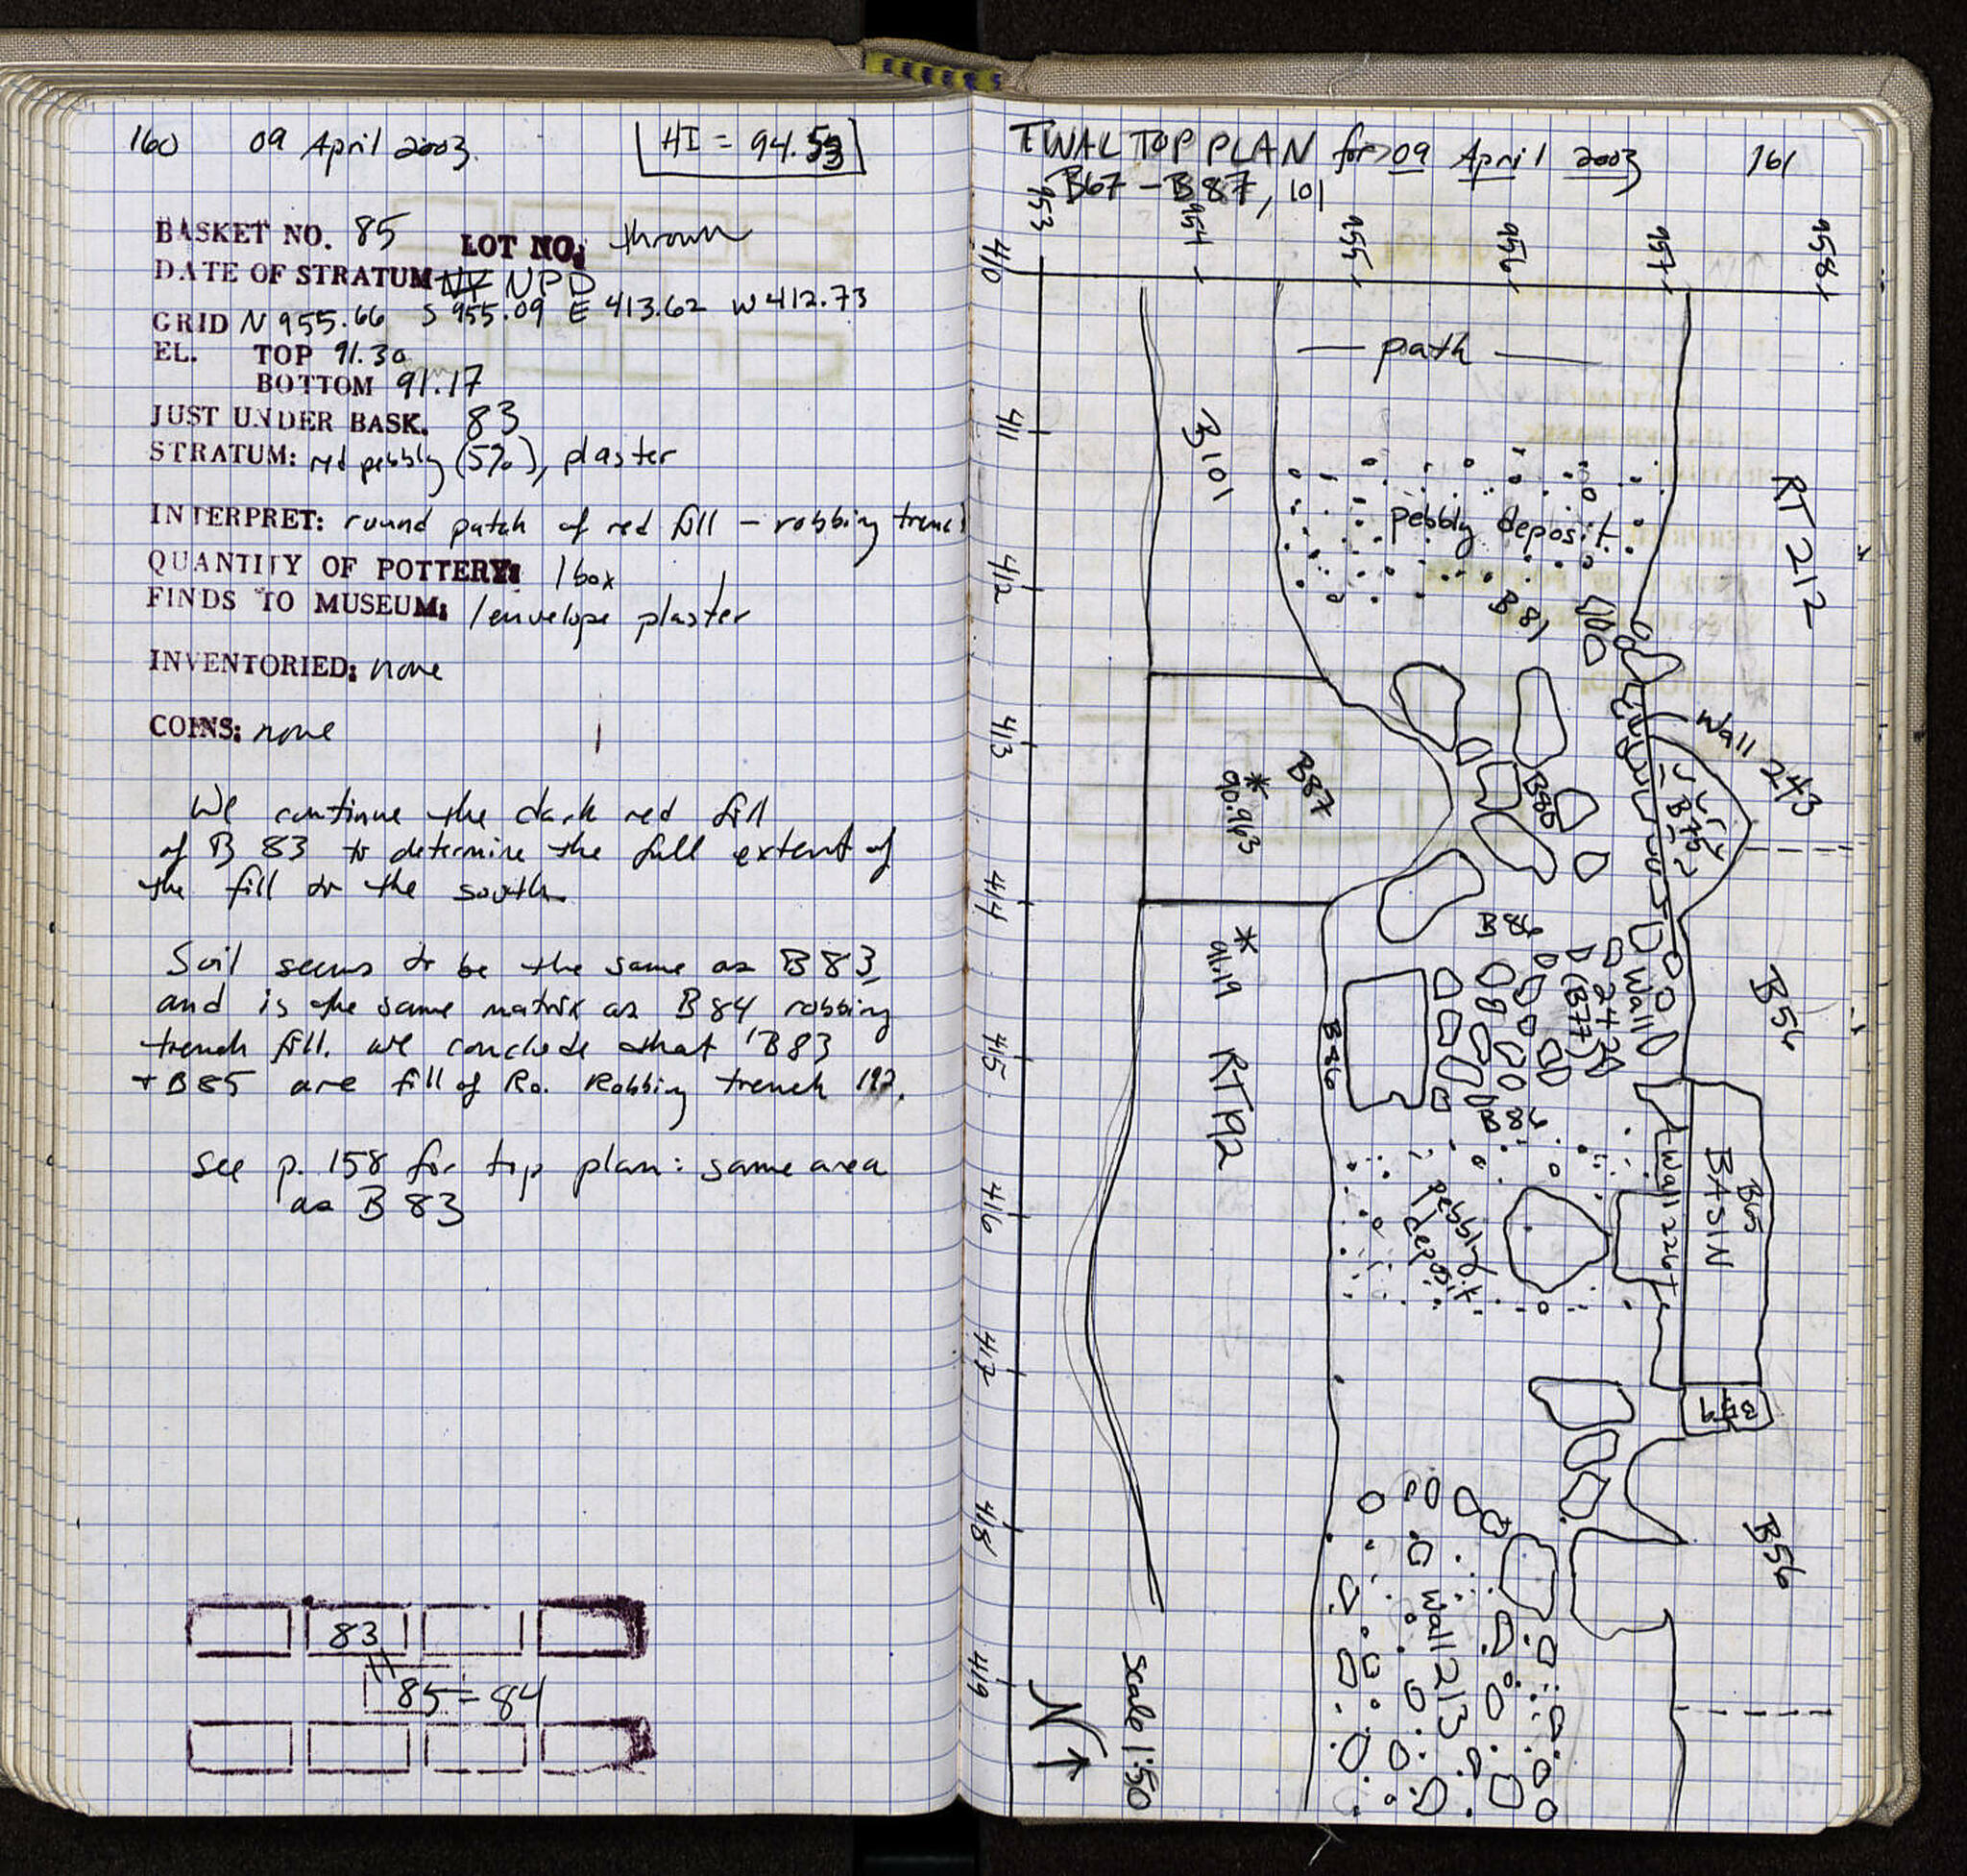 160 09 April 2003. HI = 94.53
BASKET NO. 85 LOT NO: thrown
DATE OF STRATUM NPD
GRID N 955.66 S 955.09 E 413.62 W 412.73
EL. TOP 91.30
BOTTOM 91.17
JUST UNDER BASK. 83
STRATUM: red pebbly (5%), plaster
INTERPRET: round patch of red fill - robbing trench
QUANTITY OF POTTERY: 1 box
FINDS TO MUSEUM: 1 envelope plaster
INVENTORIED: none
COINS: none
We continue the dark red fill
of B 83 to determine the full extent of
the fill to the south.
Soil seems to be the same as B 83,
and is the same matrix as B84 robbing
trench fill. We conclude that B83
+ B85 are fill of Ro. Robbing trench 192.
See p. 158 for top plan: same area
as B 83
83
85 = 84
TWAL TOP PLAN for 09 April 2003 161
B67 - B87, 101
953 954 955 956 957 958
410
411
412
413
414
415
416
417
418
419
path
B101
pebbly deposit
B81
RT 212
Wall 243
B87
* 90.963
B80
B86
* 91.19
RT 192
B86
Wall 242
(B77)
B56
B86
pebbly deposit
BASIN
B59
B56
Wall 213
scale 1:50
N